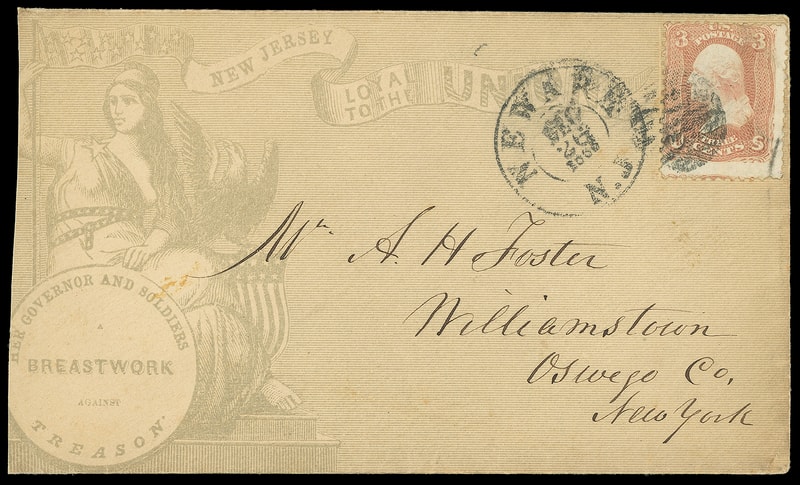 NEW JERSEY
LOYAL
TO THE
UNION
HER GOVERNOR AND SOLDIERS
A
BREASTWORK
AGAINST
TREASON.
NEWARK
N.J.
3 U.S. POSTAGE 3
THREE
CENTS
Mr. A. H Foster
Williamstown
Oswego Co.
New York